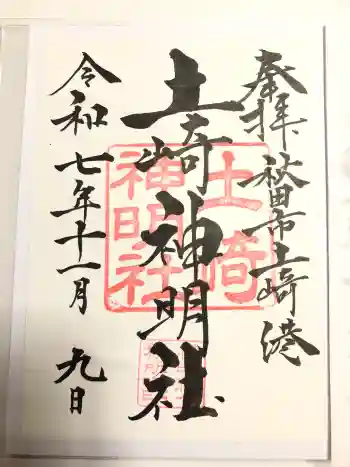 奉拝 秋田市土崎港
土崎神明社
令和七年十一月九日
土崎
神明社